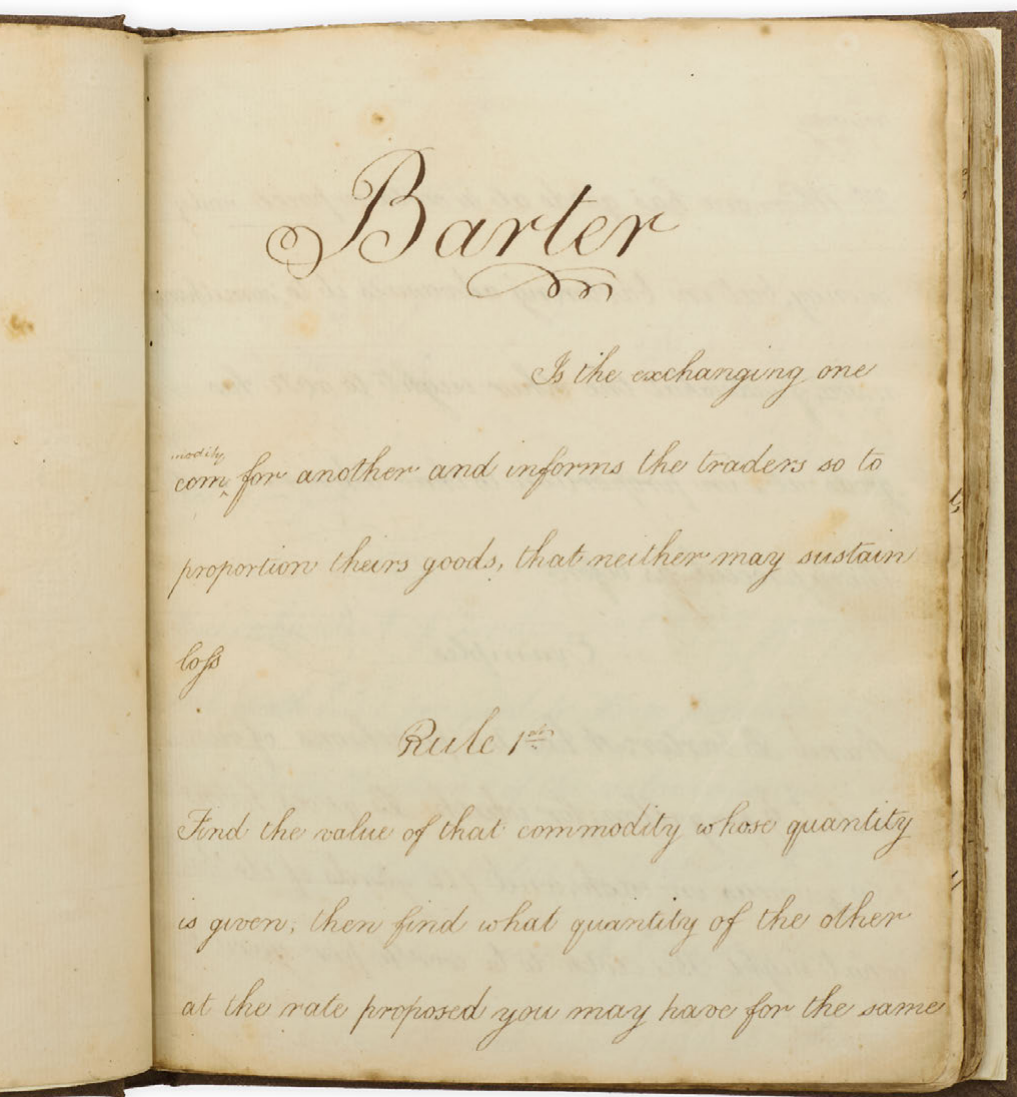 Barter
Is the exchanging one
commodity for another and informs the traders so to
proportion theirs goods, that neither may sustain
loss
Rule 1st
Find the value of that commodity whose quantity
is given; then find what quantity of the other
at the rate proposed you may have for the same